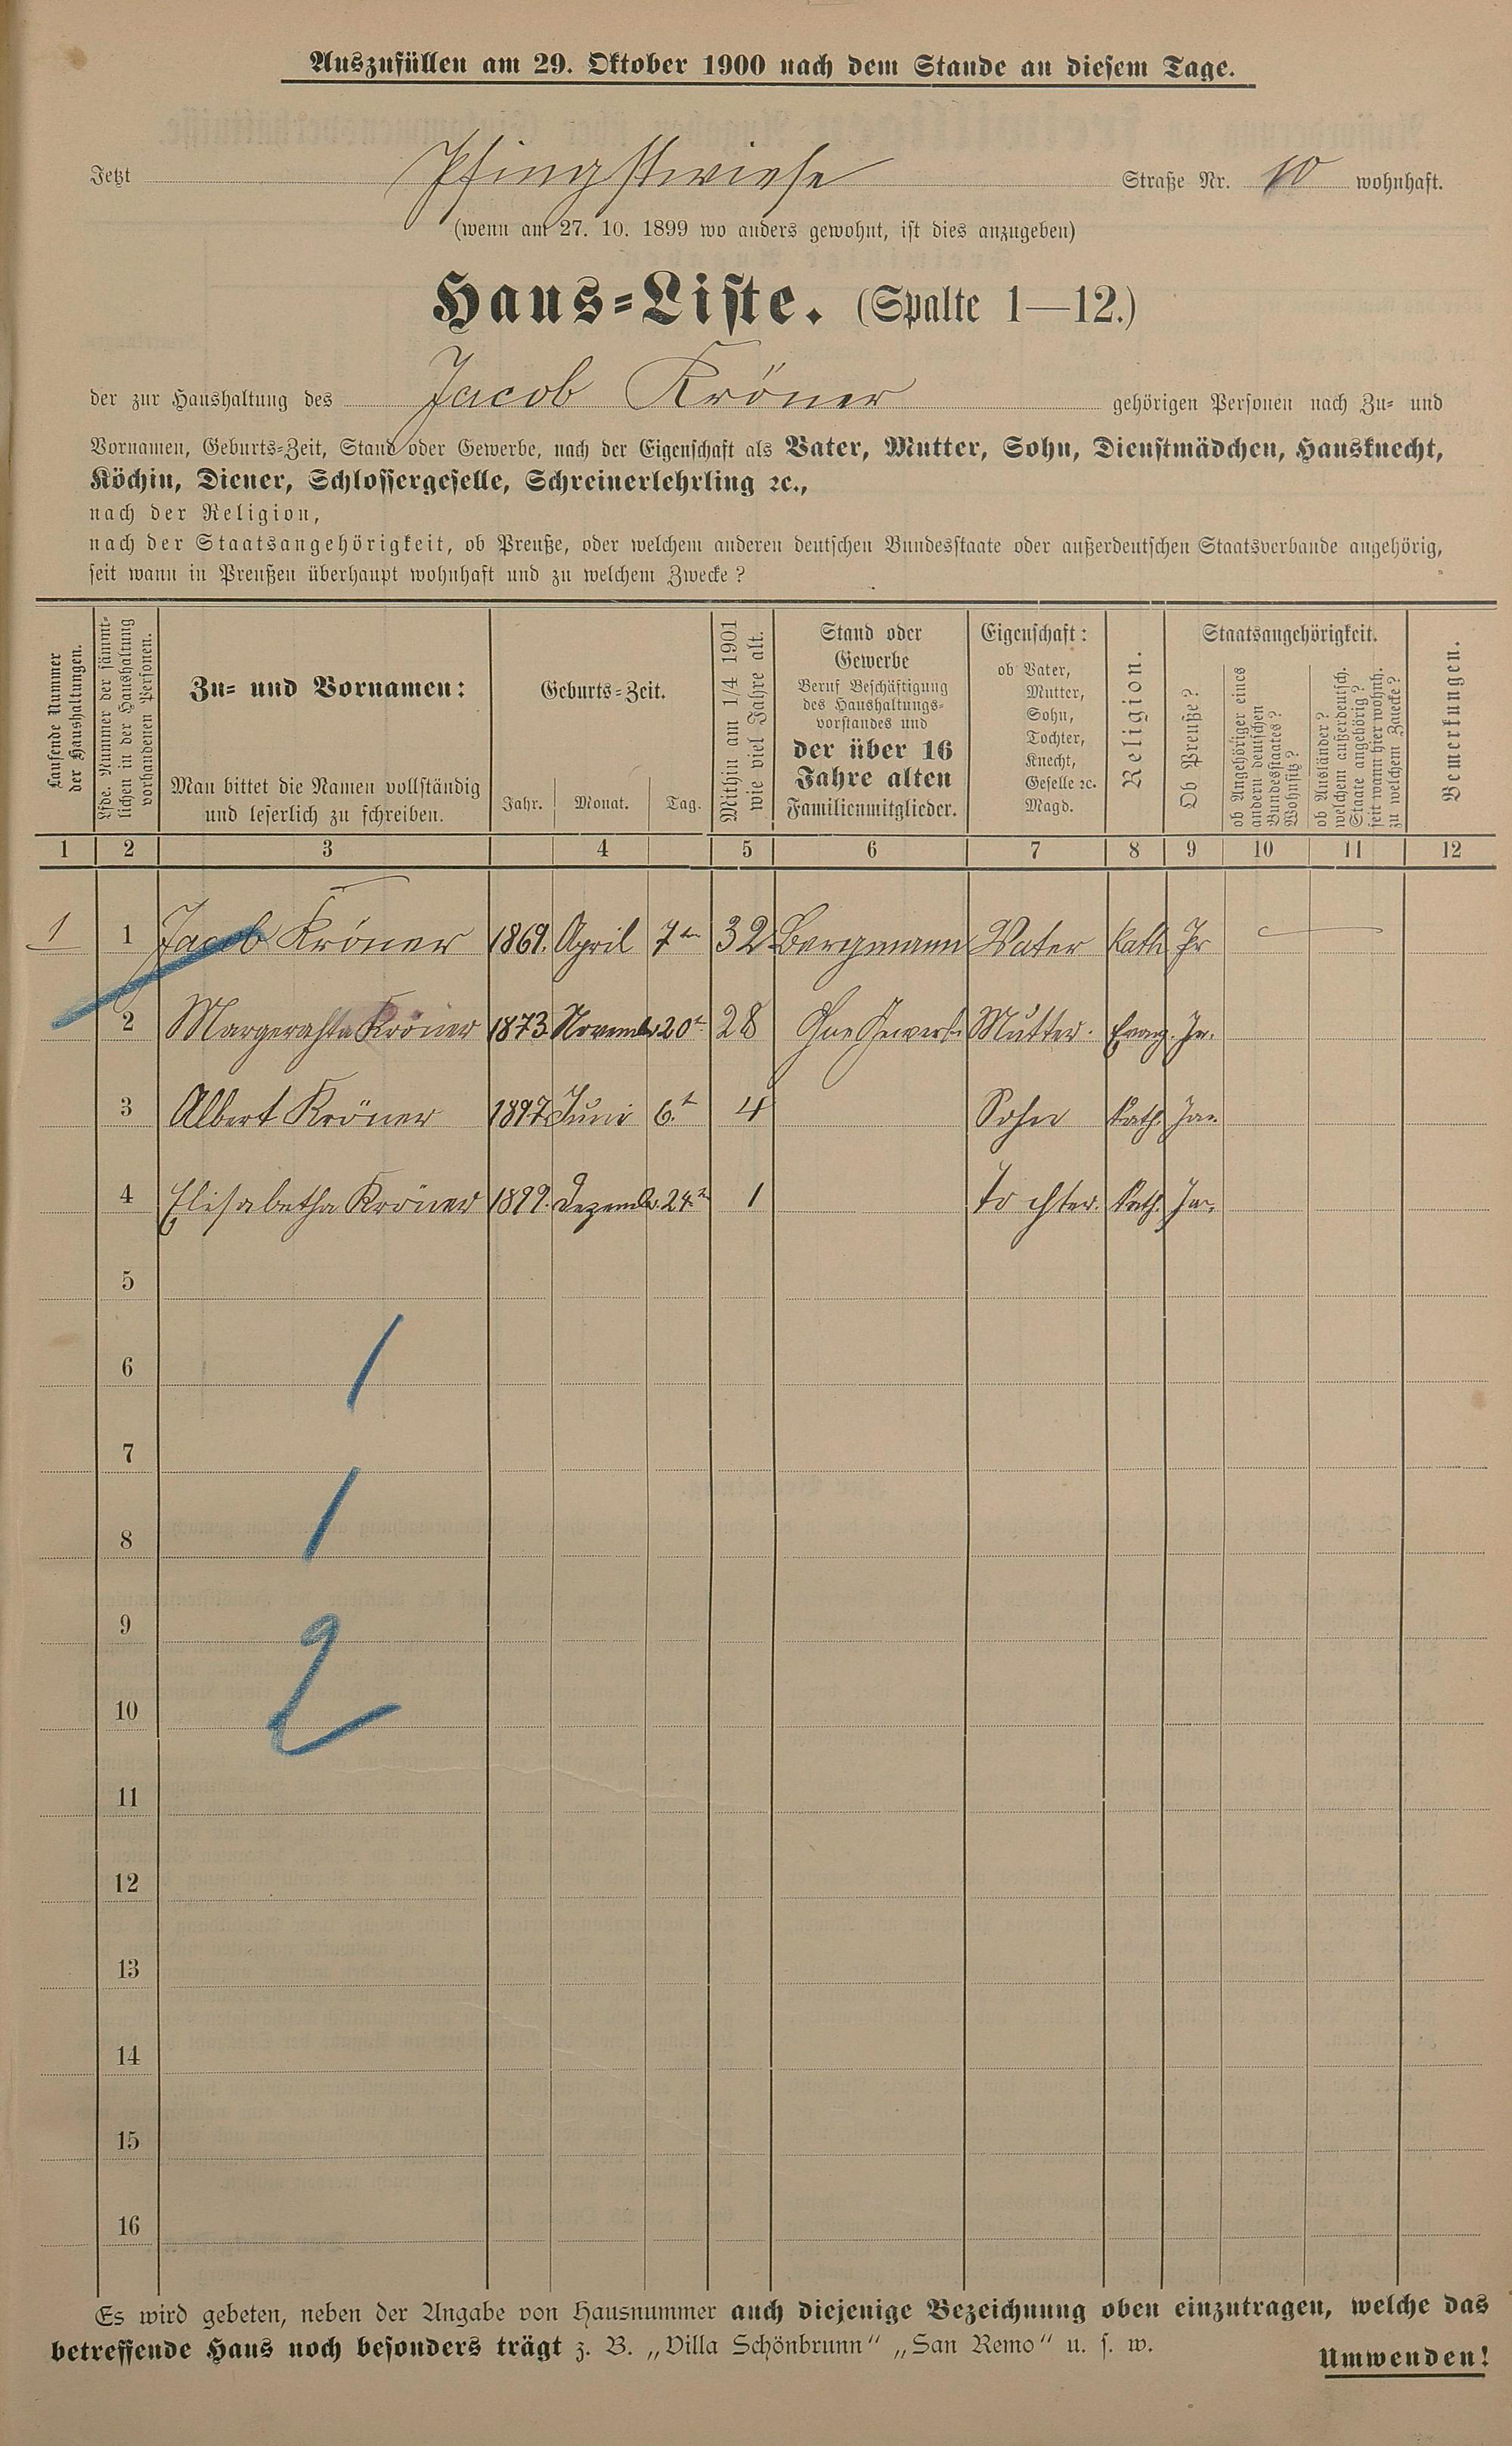 Auszufüllen am 29. Oktober 1900 nach dem Stande an diesem Tage.
Jetzt Pfingstwiese Straße Nr. 10 wohnhaft.
(wenn am 27. 10. 1899 wo anders gewohnt, ist dies anzugeben)
Haus-Liste. (Spalte 1—12.)
der zur Haushaltung des Jacob Kröner gehörigen Personen nach Zu- und
Vornamen, Geburts-Zeit, Stand oder Gewerbe, nach der Eigenschaft als Vater, Mutter, Sohn, Dienstmädchen, Hausknecht,
Köchin, Diener, Schlossergeselle, Schreinerlehrling ꝛc.,
nach der Religion,
nach der Staatsangehörigkeit, ob Preuße, oder welchem anderen deutschen Bundesstaate oder außerdeutschen Staatsverbande angehörig,
seit wann in Preußen überhaupt wohnhaft und zu welchem Zwecke?
Laufende Nummer
der Haushaltungen.
Lfde. Nummer der sämmt-
lichen in der Haushaltung
vorhandenen Personen.
Zu- und Vornamen:
Man bittet die Namen vollständig
und leserlich zu schreiben.
Geburts-Zeit.
Jahr. Monat. Tag.
Mithin am 1/4 1901
wie viel Jahre alt.
Stand oder
Gewerbe
Beruf Beschäftigung
des Haushaltungs-
vorstandes und
der über 16
Jahre alten
Familienmitglieder.
Eigenschaft:
ob Vater,
Mutter,
Sohn,
Tochter,
Knecht,
Geselle ꝛc.
Magd.
Religion.
Staatsangehörigkeit.
Ob Preuße?
ob Angehöriger eines
andern deutschen
Bundesstaates?
Wohnsitz?
ob Ausländer?
welchem außerdeutsch.
Staate angehörig?
seit wann hier wohnh.
zu welchem Zwecke?
Bemerkungen.
1 2 3 4 5 6 7 8 9 10 11 12
1 1 Jacob Kröner 1869. April 7te 32 Bergmann Vater Kath Pr
2 Kröner 1873 Novemb. 20te 28 Mutter. Evang. Ja.
3 Albert Kröner 1897 Juni 6.te 4 Sohn Kath. Ja.
4 Elisabetha Kröner 1899. Dezemb. 24.te 1 Tochter. Kath. Ja.
5
6
1
7
8
1
9
10
2
11
12
13
14
15
16
Es wird gebeten, neben der Angabe von Hausnummer auch diejenige Bezeichnung oben einzutragen, welche das
betreffende Haus noch besonders trägt z. B. „Villa Schönbrunn“ „San Remo“ u. s. w.
Umwenden!